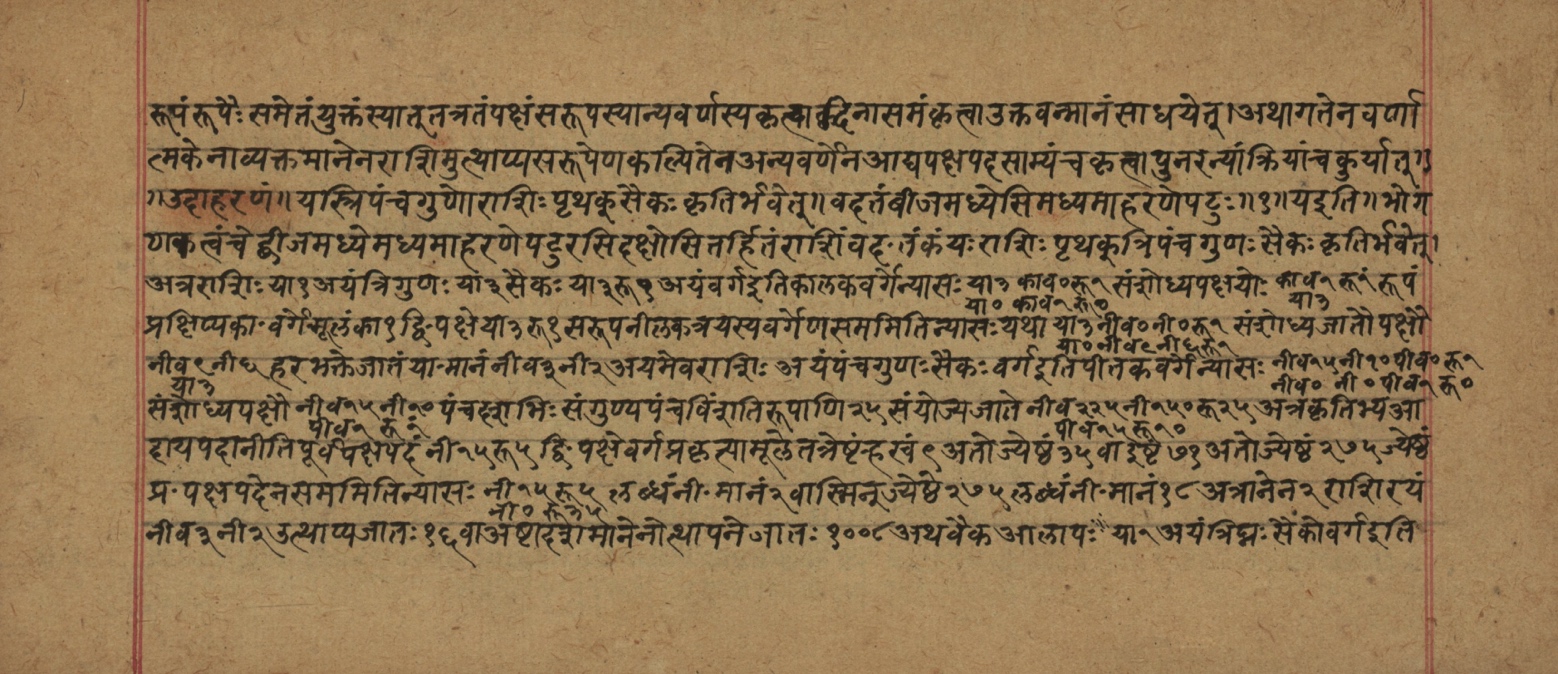 रूपं रूपैः समेतं युक्तं स्यात् तत्रतं पक्षं सरूपस्यान्यवर्णस्य कृत्या वदिना समं कृत्वा उक्तवन्मानं साधयेत् । अथागतेन वर्णा
त्मकेनाव्यक्तमानेन राशिमुत्थाप्य सरूपेण कल्पितेन अन्यवर्णेन आद्यपक्षपदसाम्यं च कृत्वा पुनरन्यां क्रियां च कुर्यात् ॥
॥ उदाहरणं ॥ यस्त्रिपंचगुणो राशिः पृथक् सैकः कृतिर्भवेत् ॥ वद तं बीजमध्येसि मध्यमाहरणे पटुः ॥ १ ॥ यइति ॥ भो ग
णक त्वं चेद्बीजमध्ये मध्यमाहरणे पटुरसि दक्षोसि तर्हि तं राशिं वद · तं कं यः राशिः पृथक् त्रिपंचगुणः सैकः कृतिर्भवेत् ।
अत्र राशिः या १ अयं त्रिगुणः या ३ सैकः या ३ रू १ अयं वर्ग इति कालकवर्गेन्यासः या ३ काव ० रू १ संशोध्य पक्षयोः काव १ रू १ं रूपं
या ० काव १ रू ० या ३
प्रक्षिप्य का · वर्गे मूलं का १ द्वि · पक्षे या ३ रू १ सरूपनीलकत्रयस्य वर्गेण सममिति न्यासः यथा या ३ नीव ० नी ० रू १ संशोध्य जातौ पक्षौ
या ० नीव ९ नी ६ रू १
नीव ९ नी ६ हरभक्ते जातं या · मानं नीव ३ नी २ अयमेव राशिः अयं पंचगुणः सैकः वर्ग इति पीतकवर्गेन्यासः नीव १५ नी १० पीव ० रू १
या ३ नीव ० नी ० पीव १ रू ०
संशोध्य पक्षौ नीव १५ नी १० पंचदशभिः संगुण्य पंचविंशति रूपाणि २५ संयोज्य जाते नीव २२५ नी १५० रू २५ अत्र कृतिभ्य आ
पीव १ रू १ं पीव १५ रू १०
दाय पदानीति पूर्वपक्षपदं नी १५ रू ५ द्वि · पक्षे वर्गप्रकृत्या मूले तत्रेष्टं ह्रस्वं ९ अतो ज्येष्ठं ३५ वा इष्टं ७१ अतो ज्येष्ठं २७५ ज्येष्ठं
प्र · पक्षपदेन सममिति न्यासः नी १५ रू ५ लब्धं नी · मानं २ वास्मिन् ज्येष्ठे २७५ लब्धं नी · मानं १८ अत्रानेन २ राशिरयं
नी ० रू ३५
नीव ३ नी २ उत्थाप्य जातः १६ वा अष्टादशमानेनोत्थापने जातः १००८ अथवैक आलापः या १ अयं त्रिघ्नः सैको वर्ग इति